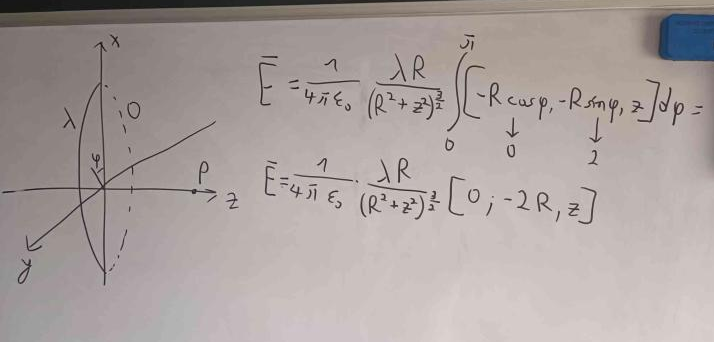 x
λ
O
φ
P
z
y
Ē = 1/(4πε₀) λR/(R²+z²)^(3/2) ∫₀^π [-R cosφ, -R sinφ, z] dφ =
↓ ↓
0 2
Ē = 1/(4πε₀) · λR/(R²+z²)^(3/2) [0; -2R, z]